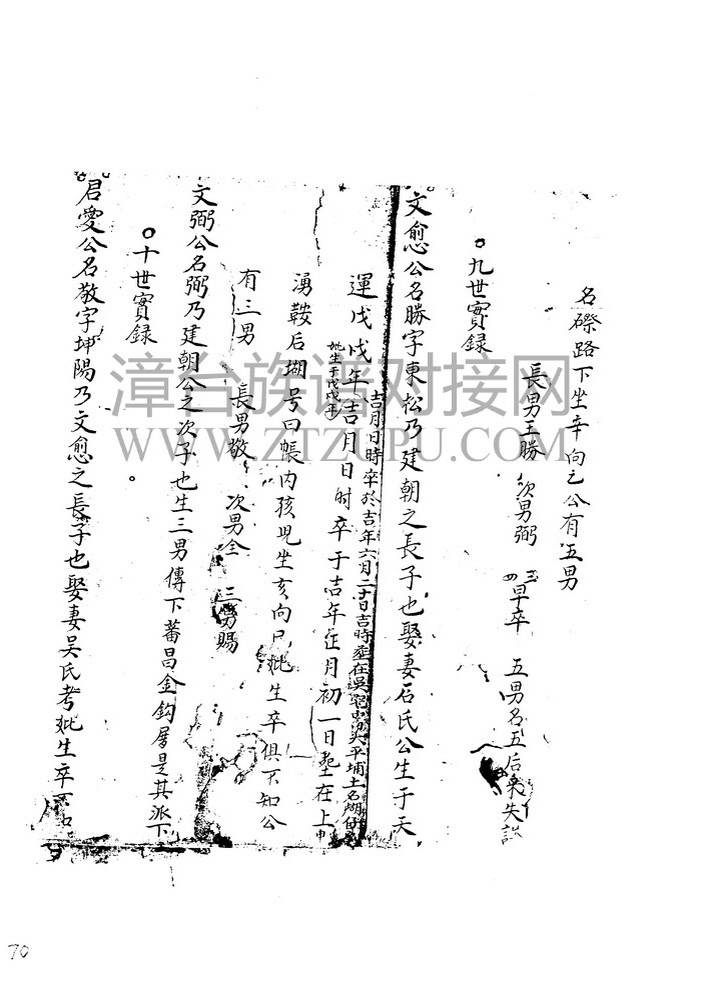 名磜路下坐辛向乙公有五男
長男王勝 次男弼 三四早卒 五男名五后來失訟
○九世實錄
文愈公名勝字東松乃建朝之長子也娶妻石氏公生于天
吉月日時卒於吉年六月二十日吉時塟在吳
平埔土名湖
運戊戌年吉月日时卒于吉年正月初一日塟在上
妣生于戊戌年
湧鞍后坳号曰帳内孩児坐亥向巳妣生卒俱不知公
有三男 長男敬 次男全 三男賜
文弼公名弼乃建朝公之次子也生三男傳下蕃昌金鈎屠是其派下
○十世實錄
君愛公名敬字坤陽乃文愈之長子也娶妻吳氏考妣生卒不
漳台族谱对接网
WWW.ZTZUPU.COM
70